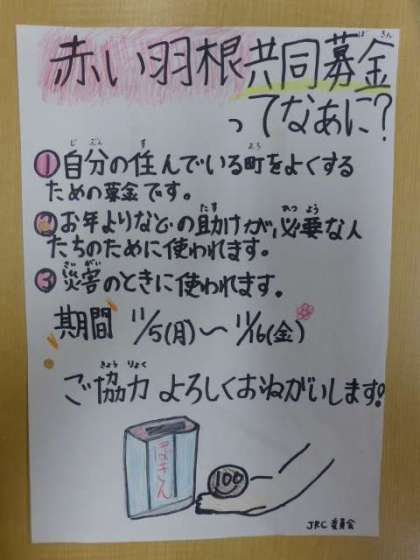 赤い羽根共同募金
ってなあに?
①自分の住んでいる町をよくする
ための募金です。
②お年よりなどの助けが必要な人
たちのために使われます。
③災害のときに使われます。
期間 11/5(月)〜11/16(金)
ご協力 よろしくおねがいします!
ぼきん
100
JRC 委員会